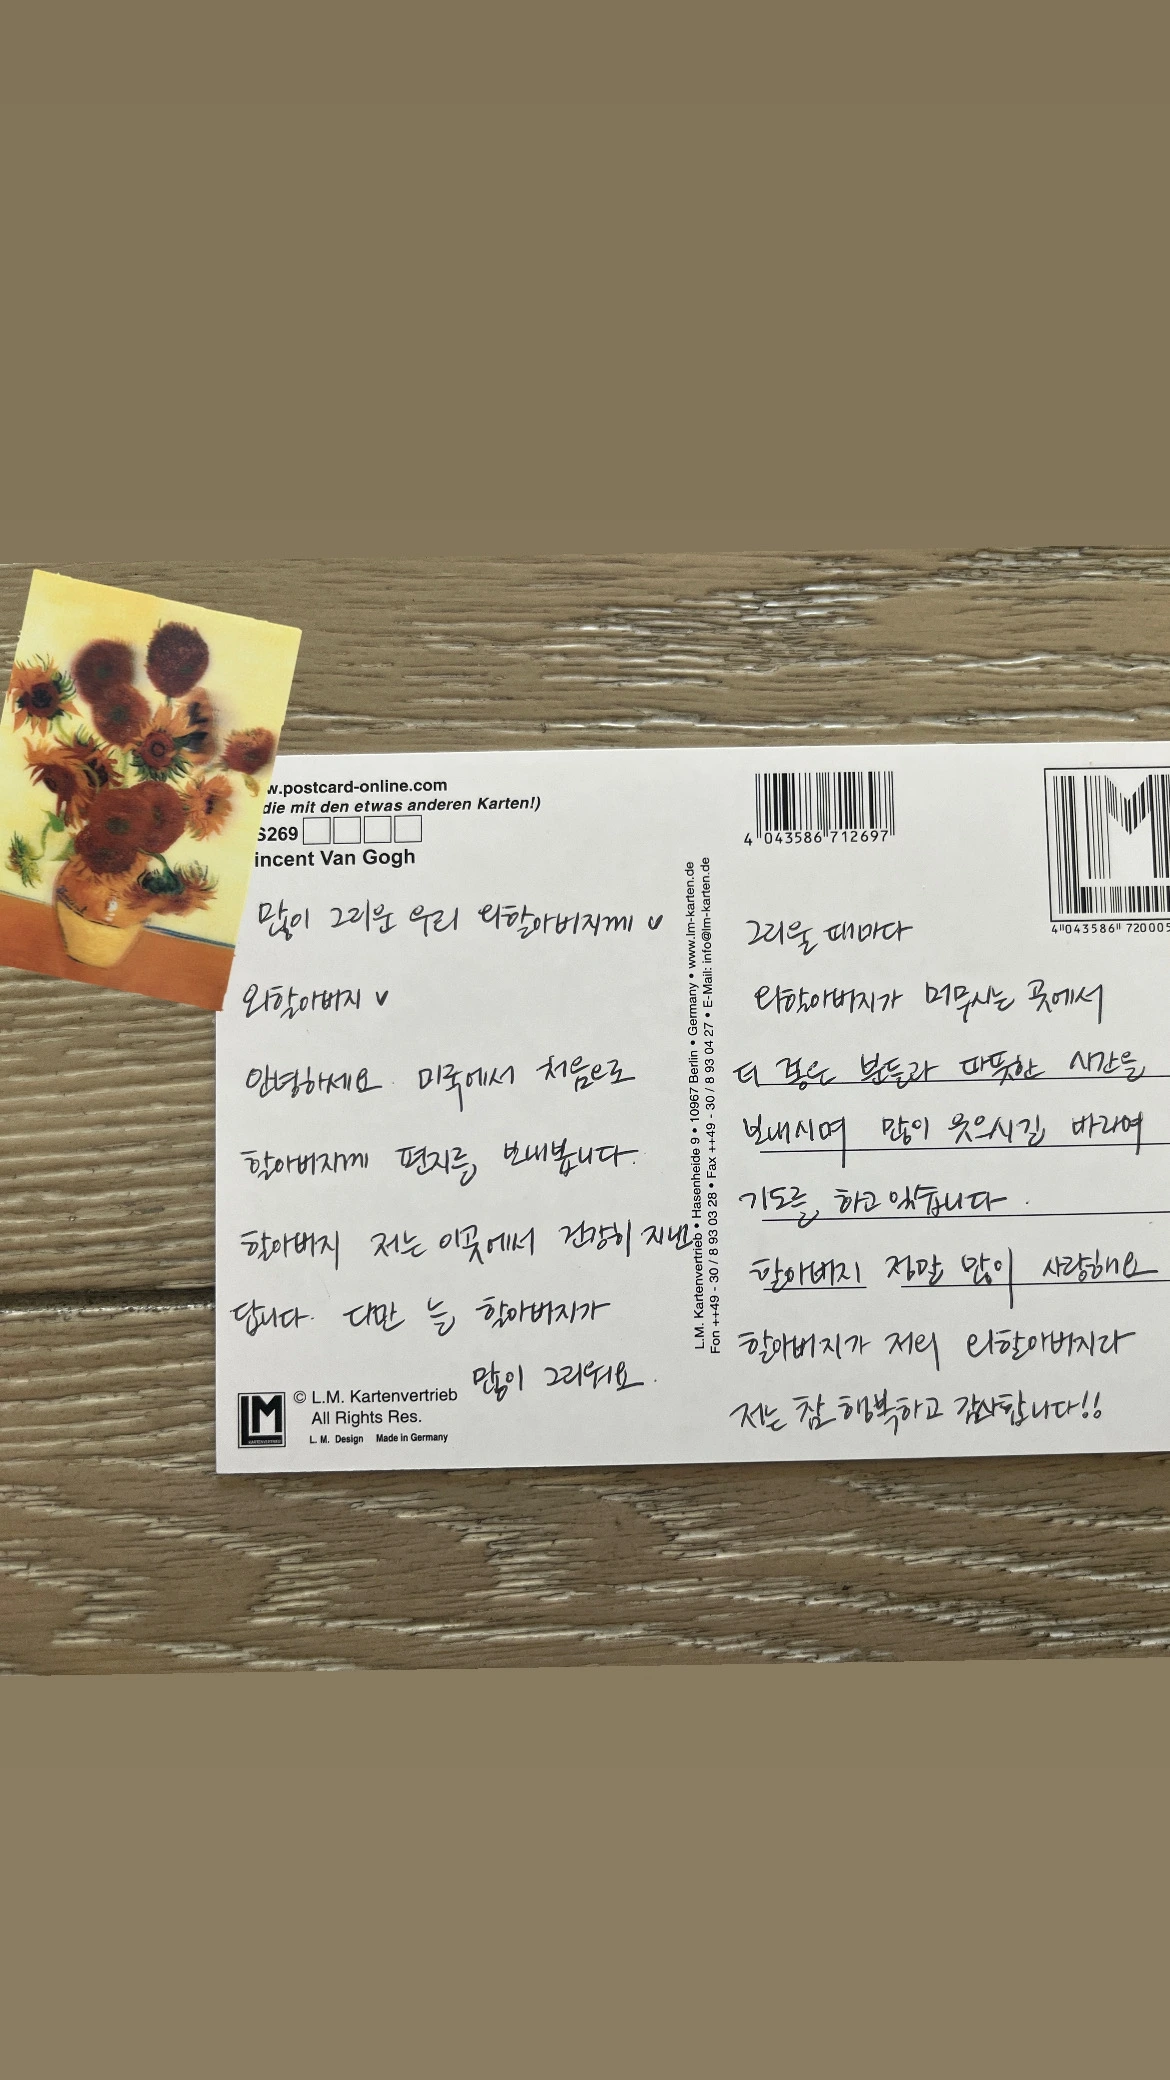 w.postcard-online.com
die mit den etwas anderen Karten!)
S269
incent Van Gogh
많이 그리운 우리 외할아버지께 ♥
외할아버지 ♥
안녕하세요. 미국에서 처음으로
할아버지께 편지를 보내봅니다.
할아버지 저는 이곳에서 건강히 지낸
답니다. 다만 늘 할아버지가
많이 그리워요.
© L.M. Kartenvertrieb
All Rights Res.
L. M. Design Made in Germany
LM
KARTENVERTRIEB
L.M. Kartenvertrieb • Hasenheide 9 • 10967 Berlin • Germany • www.lm-karten.de
Fon ++49 - 30 / 8 93 03 28 • Fax ++49 - 30 / 8 93 04 27 • E-Mail: info@lm-karten.de
4 043586 712697
M
4 043586 72000
그리울 때마다
외할아버지가 머무시는 곳에서
더 좋은 분들과 따뜻한 시간을
보내시며 많이 웃으시길 바라며
기도를 하고 있습니다.
할아버지 정말 많이 사랑해요
할아버지가 저의 외할아버지라
저는 참 행복하고 감사합니다!!